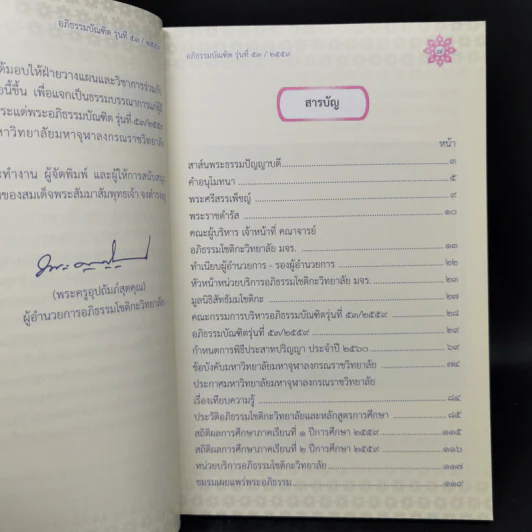 อภิธรรมบัณฑิต รุ่นที่ ๕๓ / ๒๕๕๙
ด้มอบให้ฝ่ายวางแผนและวิชาการร่วมกับ
อนี้ขึ้น เพื่อแจกเป็นธรรมบรรณาการแก่ผู้
ระแด่พระอภิธรรมบัณฑิต รุ่นที่ ๕๓/๒๕๕๙
หาวิทยาลัยมหาจุฬาลงกรณราชวิทยาลัย
ะทำงาน ผู้จัดพิมพ์ และผู้ให้การสนับสนุน
ของสมเด็จพระสัมมาสัมพุทธเจ้า จงดำรงอยู่
(พระครูอุปถัมภ์สุตคุณ)
ผู้อำนวยการอภิธรรมโชติกะวิทยาลัย
อภิธรรมบัณฑิต รุ่นที่ ๕๓ / ๒๕๕๙
สารบัญ
หน้า
สาส์นพระธรรมปัญญาบดี ๓
คำอนุโมทนา ๕
พระศรีสรรเพ็ชญ์ ๙
พระราชดำรัส ๑๐
คณะผู้บริหาร เจ้าหน้าที่ คณาจารย์
อภิธรรมโชติกะวิทยาลัย มจร. ๑๓
ทำเนียบผู้อำนวยการ - รองผู้อำนวยการ ๒๒
หัวหน้าหน่วยบริการอภิธรรมโชติกะวิทยาลัย มจร. ๒๓
มูลนิธิสัทธัมมโชติกะ ๒๗
คณะกรรมการบริหารอภิธรรมบัณฑิตรุ่นที่ ๕๓/๒๕๕๙ ๒๘
อภิธรรมบัณฑิตรุ่นที่ ๕๓/๒๕๕๙ ๒๙
กำหนดการพิธีประสาทปริญญา ประจำปี ๒๕๖๐ ๖๙
ข้อบังคับมหาวิทยาลัยมหาจุฬาลงกรณราชวิทยาลัย ๗๔
ประกาศมหาวิทยาลัยมหาจุฬาลงกรณราชวิทยาลัย
เรื่องเทียบความรู้ ๘๔
ประวัติอภิธรรมโชติกะวิทยาลัยและหลักสูตรการศึกษา ๘๕
สถิติผลการศึกษาภาคเรียนที่ ๑ ปีการศึกษา ๒๕๕๙ ๑๑๕
สถิติผลการศึกษาภาคเรียนที่ ๒ ปีการศึกษา ๒๕๕๙ ๑๑๖
หน่วยบริการอภิธรรมโชติกะวิทยาลัย ๑๑๗
ชมรมเผยแพร่พระอภิธรรม ๑๑๙